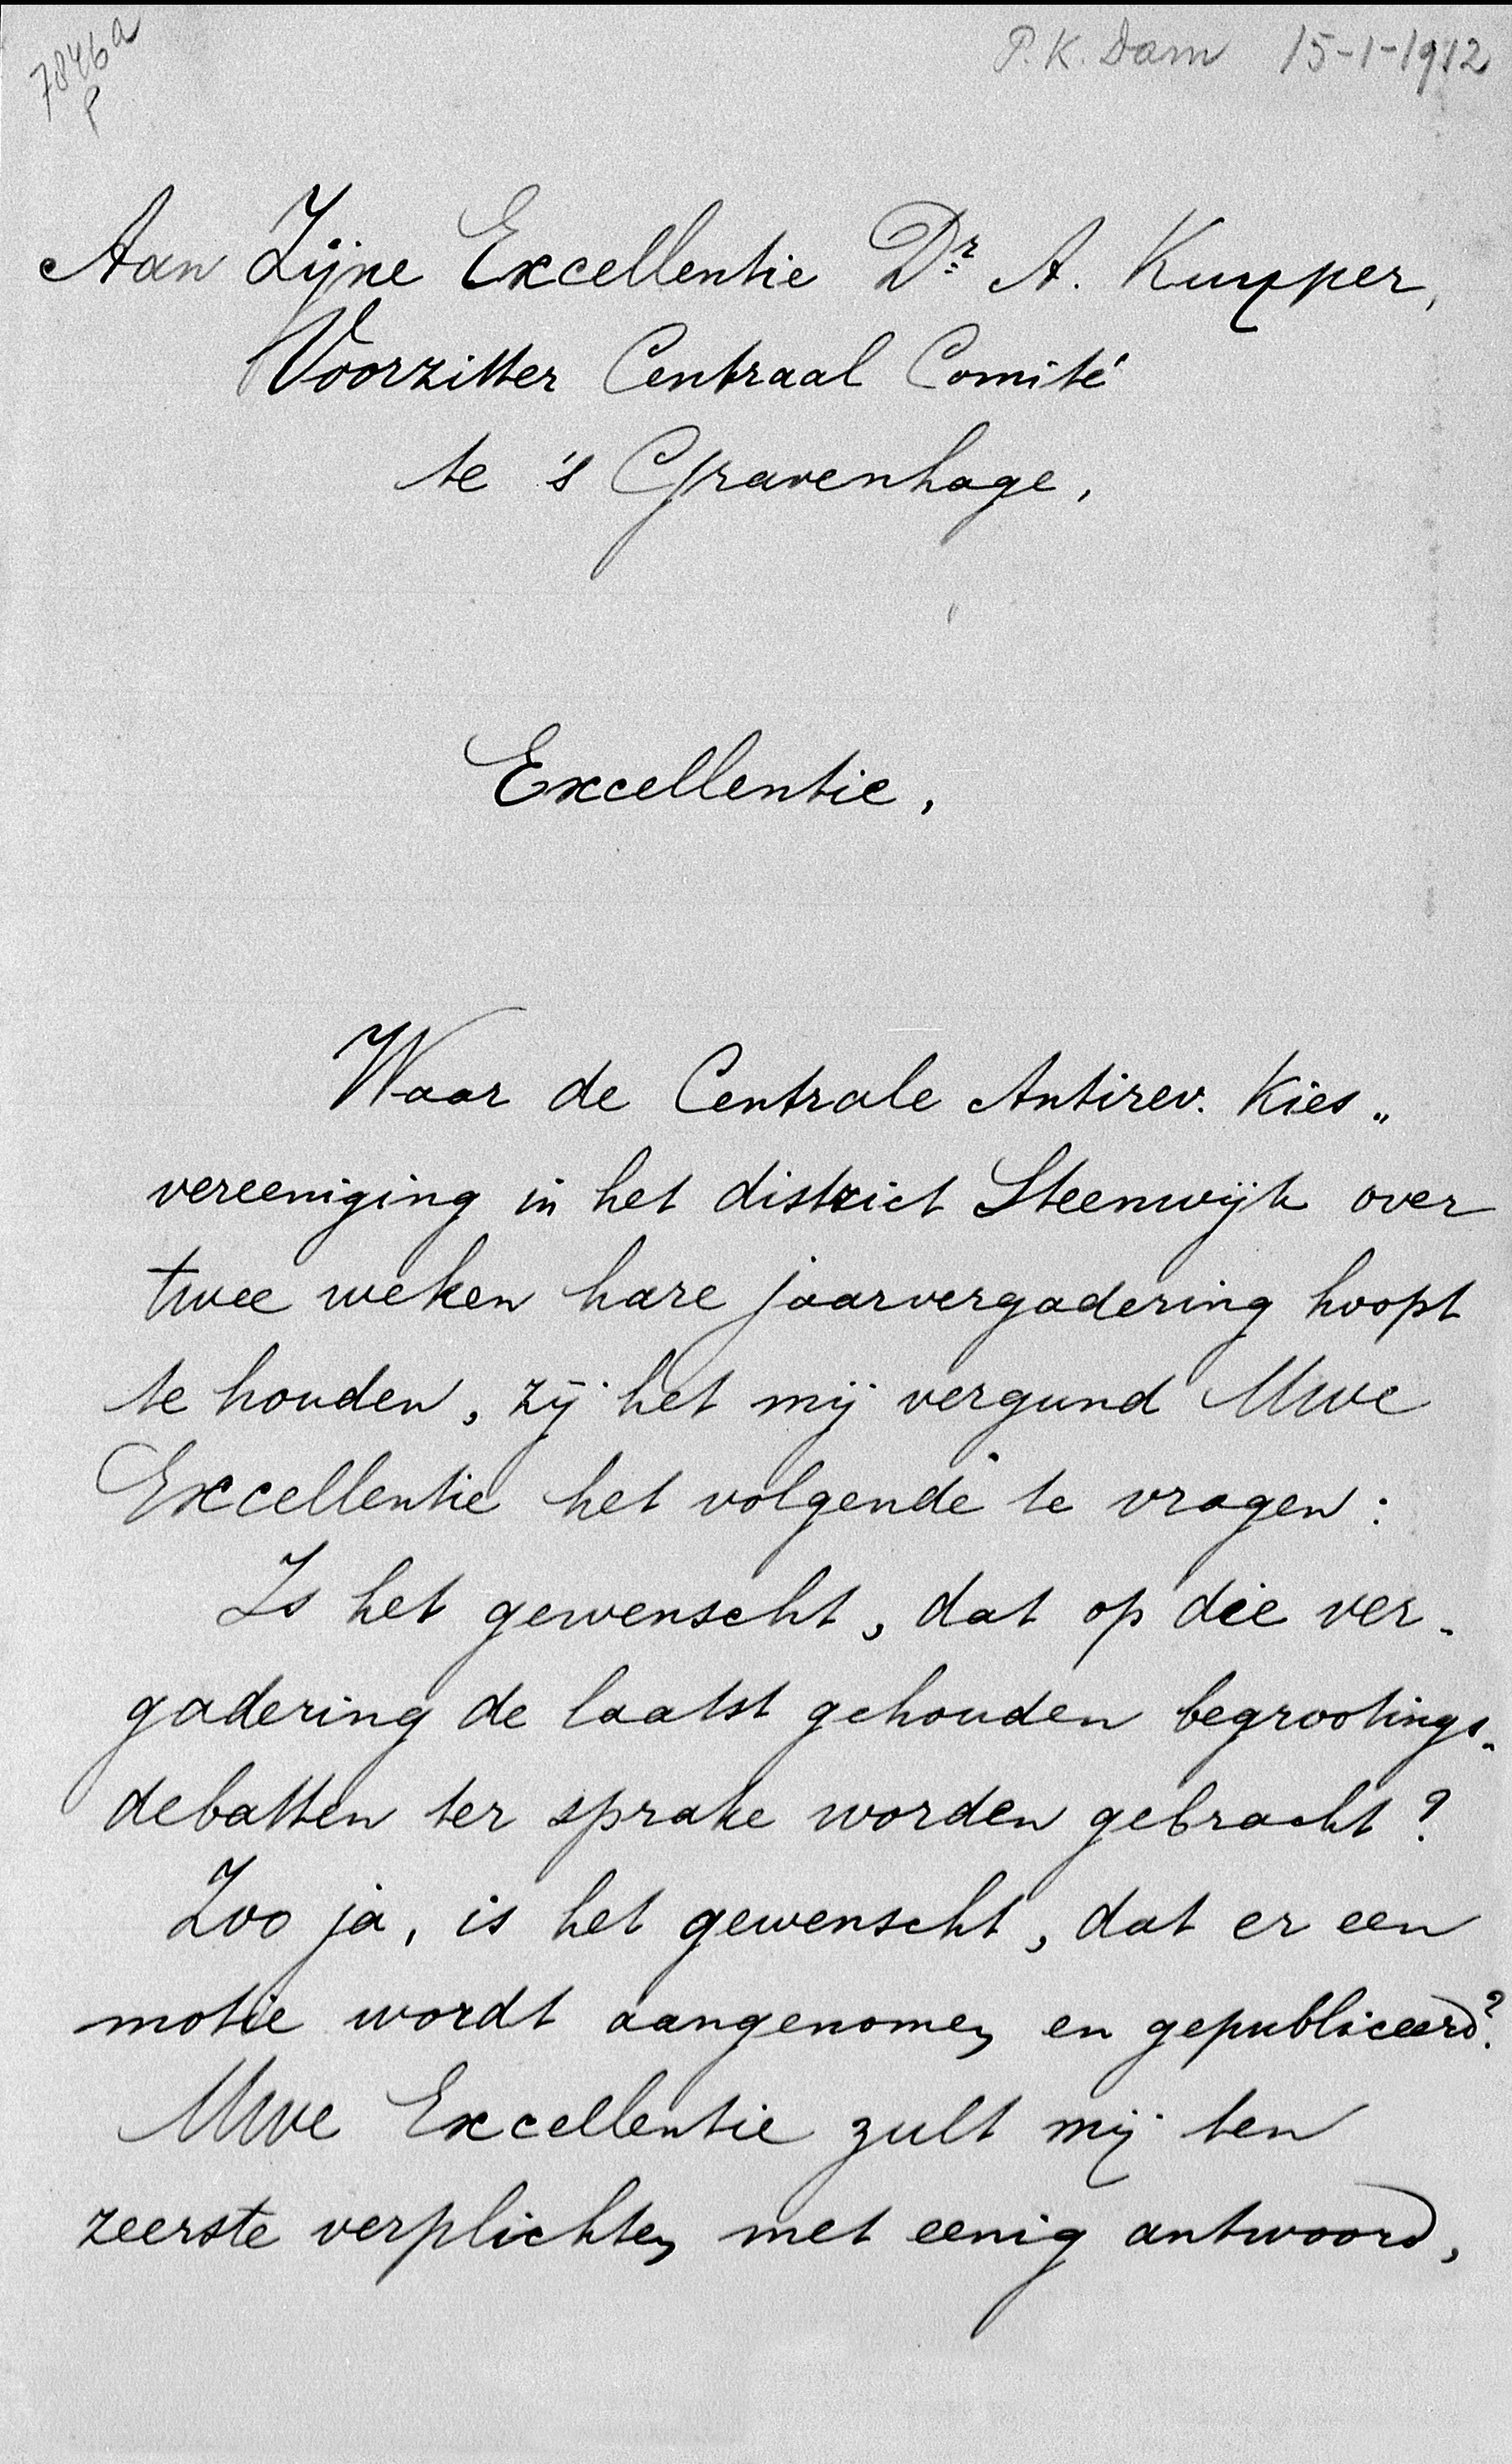 7846a
P
P. K. Dam 15-1-1912
Aan Zijne Excellentie Dr. A. Kuyper,
Voorzitter Centraal Comité
te 's Gravenhage.
Excellentie,
Waar de Centrale Antirev. Kies„
vereeniging in het district Steenwijk over
twee weken hare jaarvergadering hoopt
te houden, zij het mij vergund Uwe
Excellentie het volgende te vragen:
Is het gewenscht, dat op die ver-
gadering de laatst gehouden begrootings-
debatten ter sprake worden gebracht?
Zoo ja, is het gewenscht, dat er een
motie wordt aangenomen en gepubliceerd?
Uwe Excellentie zult mij ten
zeerste verplichten met eenig antwoord,